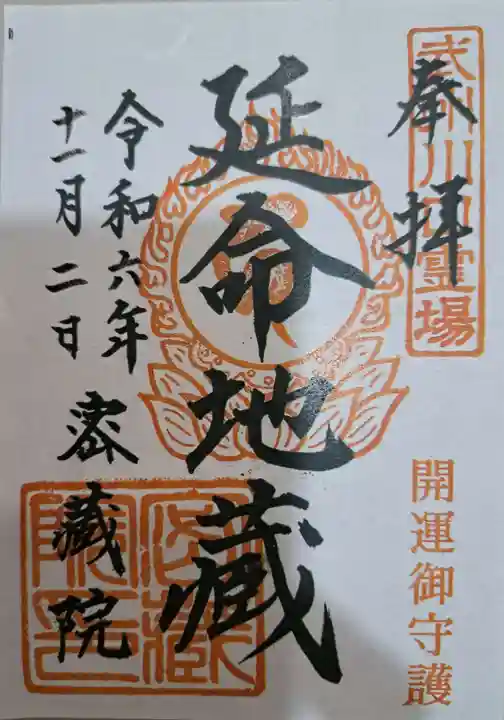 奉拝
武州川口霊場
開運御守護
延命地蔵
令和六年
十一月二日
密蔵院
密蔵院